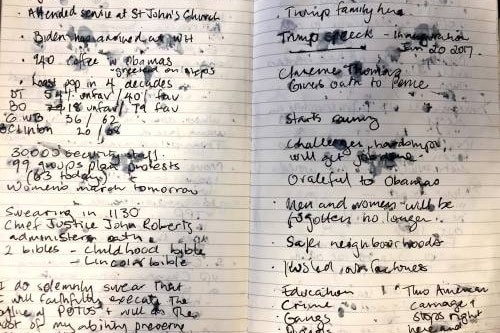 Attended service at St John's Church
Biden has arrived at WH
940 coffee w Obamas
greeted on steps
Least pop in 4 decades
DT 54 unfav / 40 fav
BO 18 unfav / 79 fav
G WB 36 / 62
B Clinton 20 /
30000 security staff
99 groups plan protests
(63 today)
Womens march tomorrow
Swearing in 1130
Chief Justice John Roberts
administers oath
2 bibles - Childhood bible
- Lincoln bible
I do solemnly swear that
I will faithfully execute the
office of POTUS + will do the
best of my ability preserve
Trump family here
Trump speech - Inauguration
Jan 20 2017
Clarence Thomas
Gives oath to Pence
Starts
challenges, hardships
will get job done
Grateful to Obamas
Men and women will be
forgotten no longer
Safe neighborhoods
Rusted out factories
Education
Crime
Gangs
This American
carnage
stops right
here and